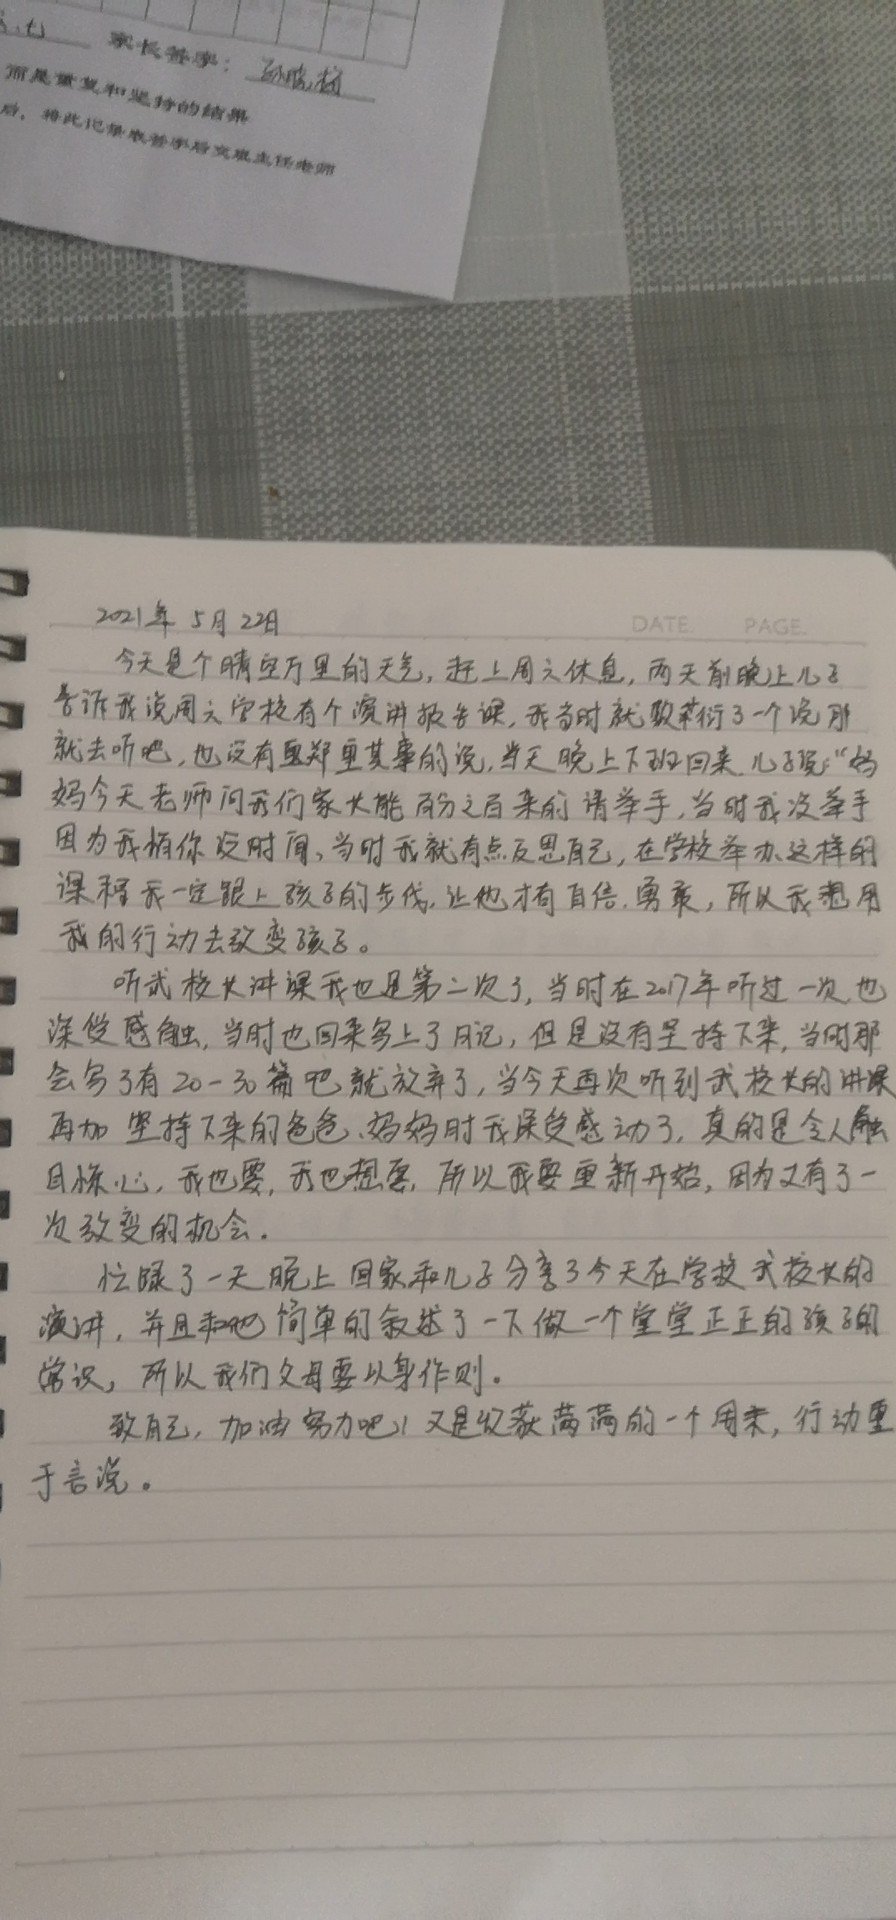 家长签字：
而是重复和坚持的结果
后，将此记录表签字后交班主任老师
DATE. PAGE.
2021年 5月22日
今天是个晴空万里的天气，赶上周六休息，两天前晚上儿子
告诉我说周六学校有个演讲报告课，我当时就敷衍了一个说那
就去听吧，也没有郑重其事的说，当天晚上下班回来儿子说："妈
妈今天老师问我们家长能百分之百来的请举手，当时我没举手
因为我怕你没时间、当时我就有点反思自己，在学校举办这样的
课程我一定跟上孩子的步伐，让他才有自信、勇敢，所以我想用
我的行动去改变孩子。
听武校长讲课我也是第二次了，当时在2017年听过一次也
深受感触，当时也回来写上了日记，但是没有坚持下来，当时那
会写了有20-30篇吧就放弃了，当今天再次听到武校长的讲课
再加坚持下来的爸爸、妈妈时我深受感动了，真的是令人触
目惊心，我也要，我也想要，所以我要重新开始，因为又有了一
次改变的机会。
忙碌了一天晚上回家和儿子分享了今天在学校武校长的
演讲，并且和他简单的叙述了一下做一个堂堂正正的孩子的
常识，所以我们父母要以身作则。
致自己，加油努力吧！又是收获满满的一个周末，行动重
于言说。